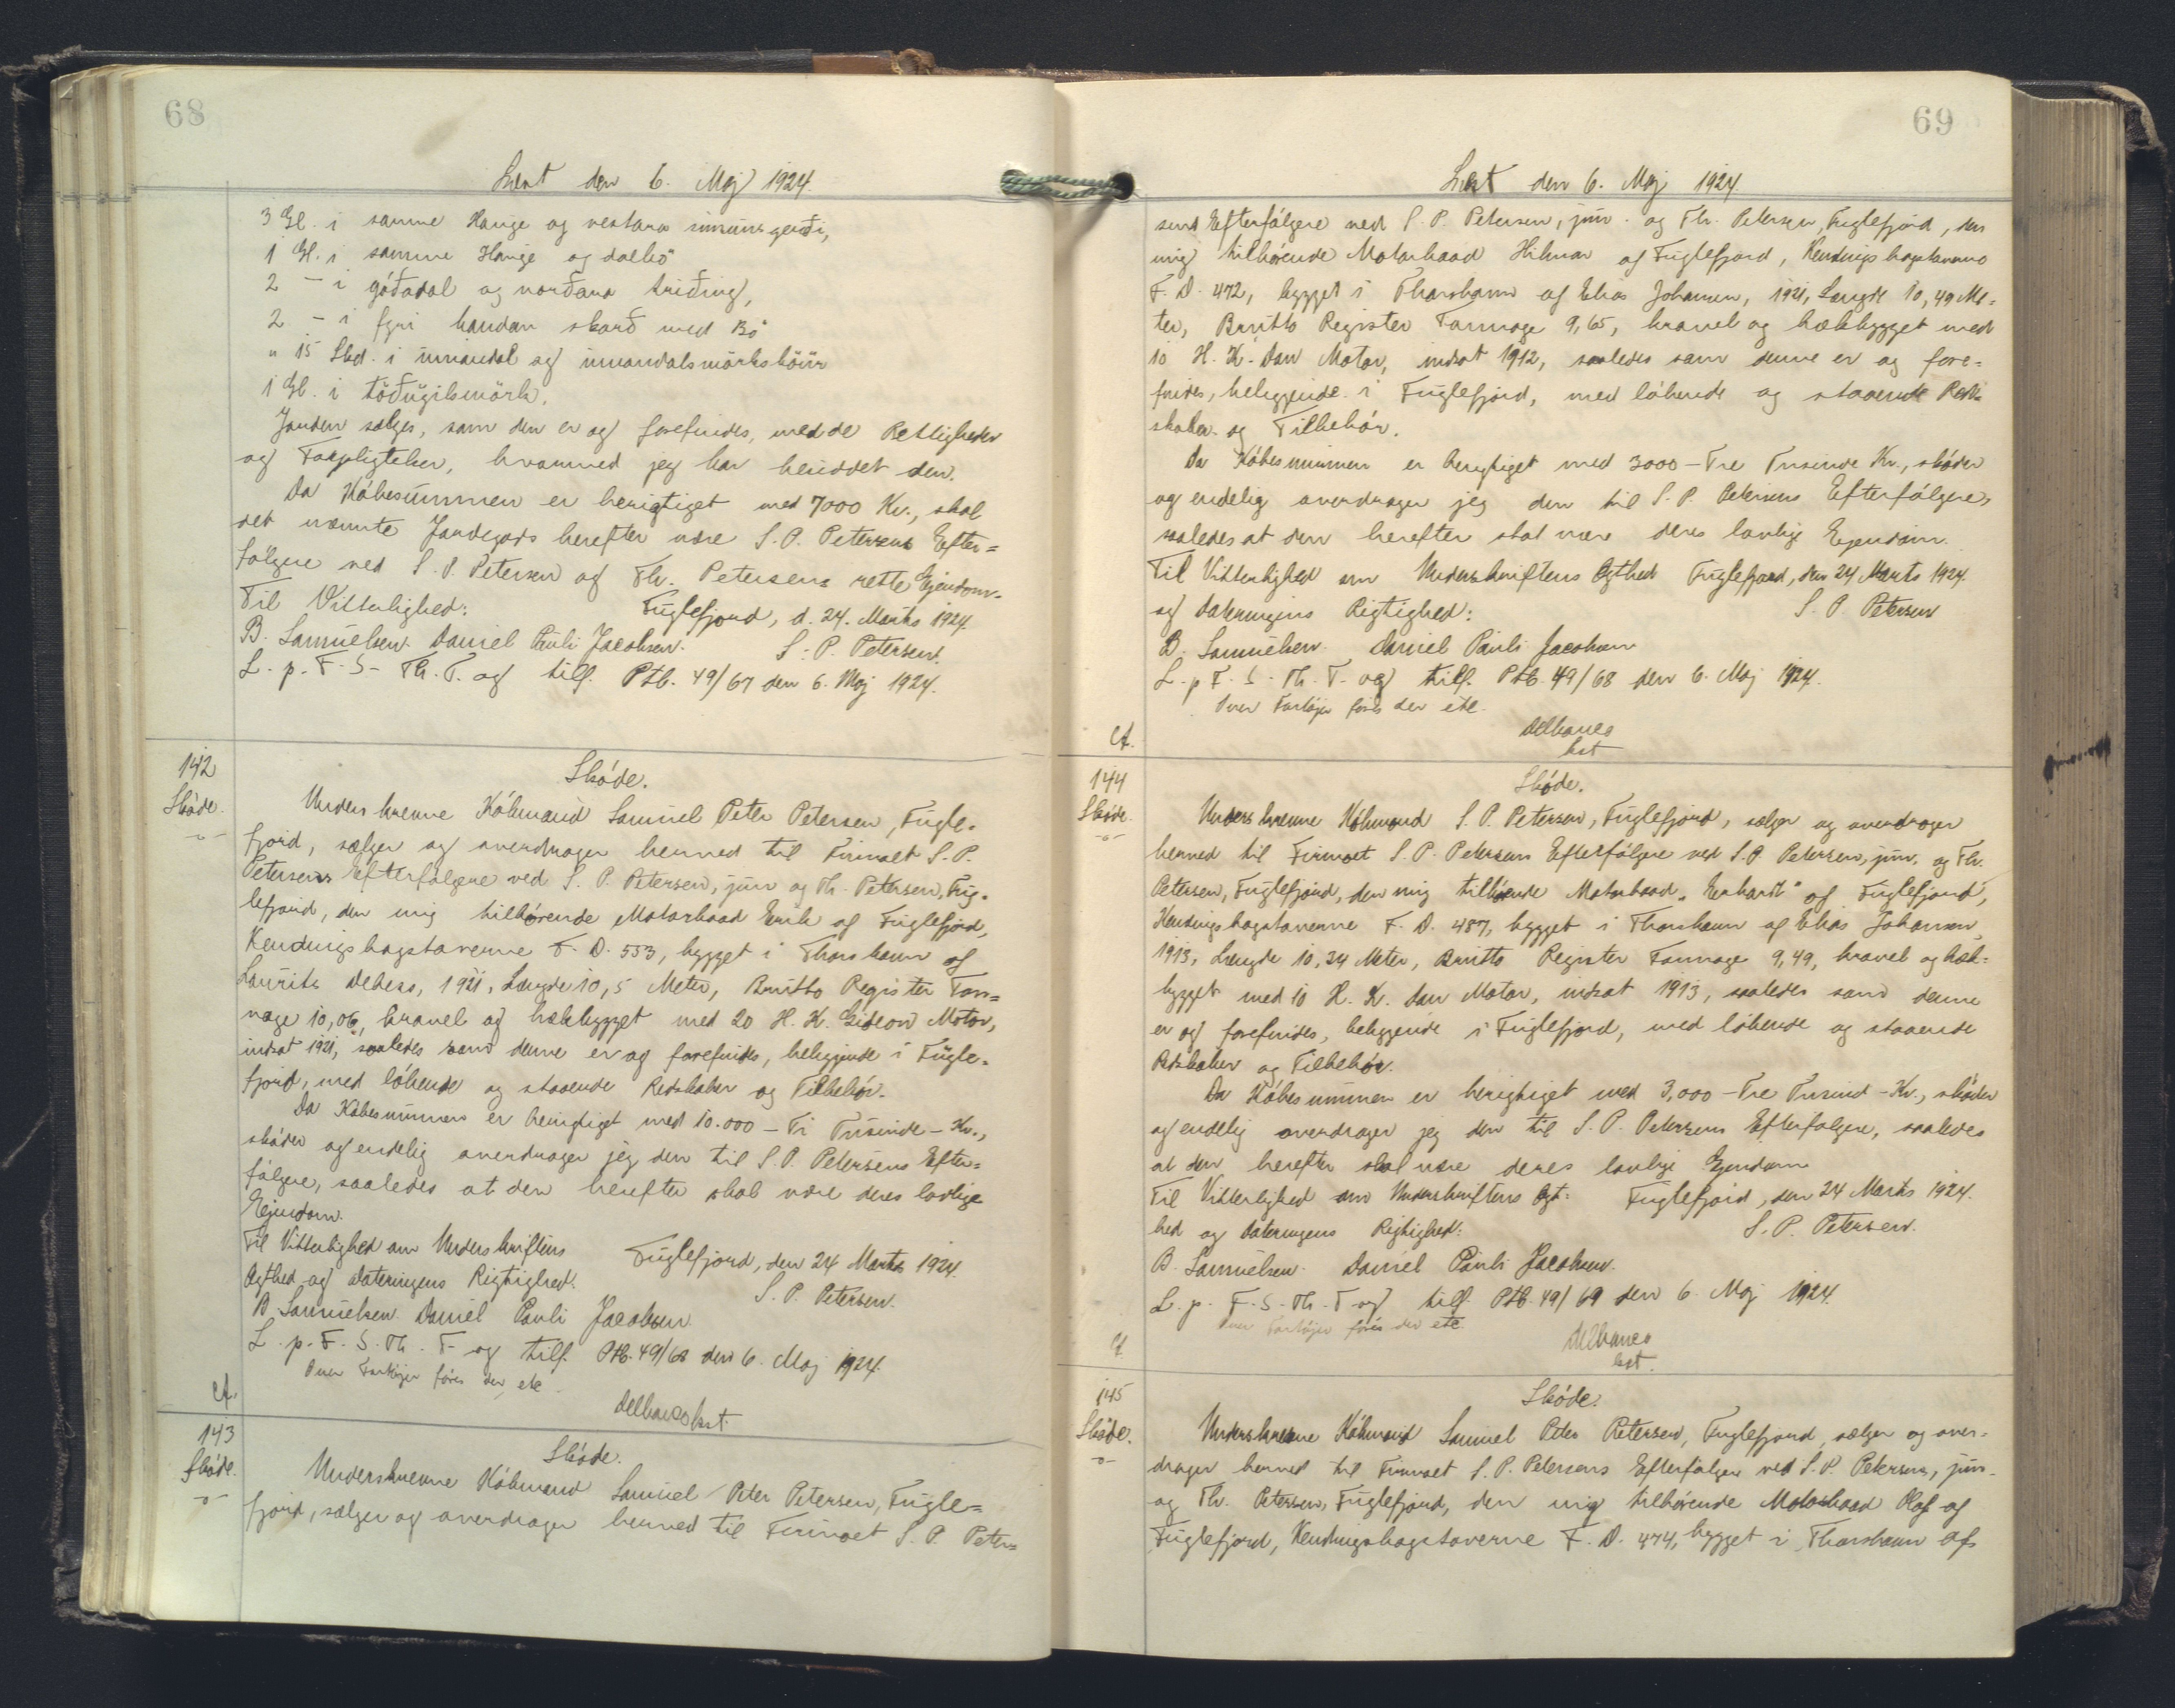 68
Læst den 6. Maj 1924.
3 Gl. i samme Hauge og vestara innangerði,
1 Gl. i samme Hauge og dalbö
2 - i góðadal og norðara triðing,
2 - i fyri handan skarð med Bö
" 15 Skd. i innandal og innandalsmörkshöur
1 Gl. i töðugilsmörk.
Jorden sælges, som den er og forefindes, med de Rettigheder
og Forpligtelser, hvormed jeg har besiddet den.
Da Kóbesummen er berigtiget med 7000 Kr., skal
det nævnte Jordegods herefter være S. P. Petersens Efter=
fólgere ved S. P. Petersen og Th. Petersens rette Ejendom.
Til Vitterlighed: Fuglefjord, d. 24. Marts 1924.
B. Samuelsen. Daniel Pauli Jacobsen. S. P. Petersen.
L. p. F. S. Th. T. og tilf. Ptb. 49/67 den 6. Maj 1924.
142
Skóde.
Skóde.
Underskrevne Kóbmand Samuel Peter Petersen, Fugle-
fjord, sælger og overdrager herved til Firmaet S. P.
Petersens Efterfólgere ved S. P. Petersen, jun og Th. Petersen, Fug-
lefjord, den mig tilhórende Motorbaad Erik af Fuglefjord,
Kendingsbogstaverne F. D. 553, bygget i Thorshavn af
Laurits Debess, 1921, Længde 10,5 Meter, Brutto Register Ton=
nage 10,06, kravel og hækbygget med 20 H. K. Gideon Motor,
indsat 1921, saaledes som denne er og forefindes, beliggende i Fugle-
fjord, med lóbende og staaende Redskaber og Tilbehór.
Da Kóbesummen er berigtiget med 10.000 - Ti Tusinde - Kr.,
skóder og endelig overdrager jeg den til S. P. Petersens Efter=
fólgere, saaledes at den herefter skal være deres lovlige
Ejendom.
Til Vitterlighed om Underskriftens Fuglefjord, den 24 Marts 1924.
Ægthed og Dateringens Rigtighed. S. P. Petersen.
B. Samuelsen. Daniel Pauli Jacobsen
L. p. F. S. Th. T. og tilf. Ptb. 49/68 den 6. Maj 1924.
Over Fartójer fóres der etc.
Cf.
Delbanco kst.
143
Skóde.
Skóde.
Underskrevne Kóbmand Samuel Peter Petersen, Fugle=
fjord, sælger og overdrager herved til Firmaet S. P. Peter=
69
Læst den 6. Maj 1924.
sens Efterfólgere ved S. P. Petersen, jun. og Th. Petersen, Fuglefjord, den
mig tilhórende Motorbaad Hilmar af Fuglefjord, Kendingsbogstaverne
F. D. 472, bygget i Thorshavn af Elias Johansen, 1921, Længde 10,49 Me-
ter, Brutto Register Tonnage 9,65, kravel og hækbygget med
10 H. K. Dan Motor, indsat 1912, saaledes som denne er og fore=
findes, beliggende i Fuglefjord, med lóbende og staaende Red=
skaber og Tilbehór.
Da Kóbesummen er berigtiget med 3000 - Tre Tusinde Kr., skóder
og endelig overdrager jeg den til S. P. Petersens Efterfólgere,
saaledes at den herefter skal være deres lovlige Ejendom.
Til Vitterlighed om Underskriftens Ægthed Fuglefjord, den 24 Marts 1924.
og Dateringens Rigtighed: S. P. Petersen
B. Samuelsen. Daniel Pauli Jacobsen
L. p. F. S. Th. T. og tilf. Ptb. 49/68 den 6. Maj 1924.
Over Fartójer fóres der etc.
Cf.
Delbanco
kst
144
Skóde.
Skóde.
Underskrevne Kóbmand S. P. Petersen, Fuglefjord, sælger og overdrager
herved til Firmaet S. P. Petersens Efterfólgere ved S. P. Petersen, jun. og Th.
Petersen, Fuglefjord, den mig tilhórende Motorbaad "Enhard" af Fuglefjord,
Kendingsbogstaverne F. D. 487, bygget i Thorshavn af Elias Johansen,
1913, Længde 10,34 Meter, Brutto Register Tonnage 9,49, kravel og hæk-
bygget med 10 H. K. Dan Motor, indsat 1913, saaledes som denne
er og forefindes, beliggende i Fuglefjord, med lóbende og staaende
Redskaber og Tilbehór.
Da Kóbesummen er berigtiget med 3,000 - Tre Tusind - Kr., skóder
og endelig overdrager jeg den til S. P. Petersens Efterfólgere, saaledes
at den herefter skal være deres lovlige Ejendom
Til Vitterlighed om Underskriftens Ægt- Fuglefjord, den 24 Marts 1924.
hed og Dateringens Rigtighed: S. P. Petersen.
B. Samuelsen. Daniel Pauli Jacobsen.
L. p. F. S. Th. T. og tilf. Ptb. 49/69 den 6. Maj 1924.
Over Fartójer fóres der etc.
Cf.
Delbanco
kst.
145
Skóde.
Skóde.
Underskrevne Kóbmand Samuel Peter Petersen, Fuglefjord, sælger og over-
drager herved til Firmaet S. P. Petersens Efterfólgere ved S. P. Petersen, jun.
og Th. Petersen, Fuglefjord, den mig tilhórende Motorbaad Olaf af
Fuglefjord, Kendingsbogstaverne F. D. 474, bygget i Thorshavn af